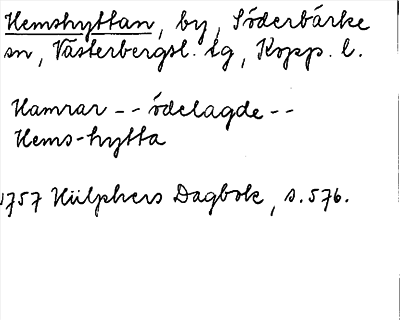 Hemshyttan, by, Söderbärke
sn, Västerbergsl. tg, Kopp. l.
Hamrar -- ödelagde --
Hems-hytta
1757 Hülphers Dagbok, s. 576.